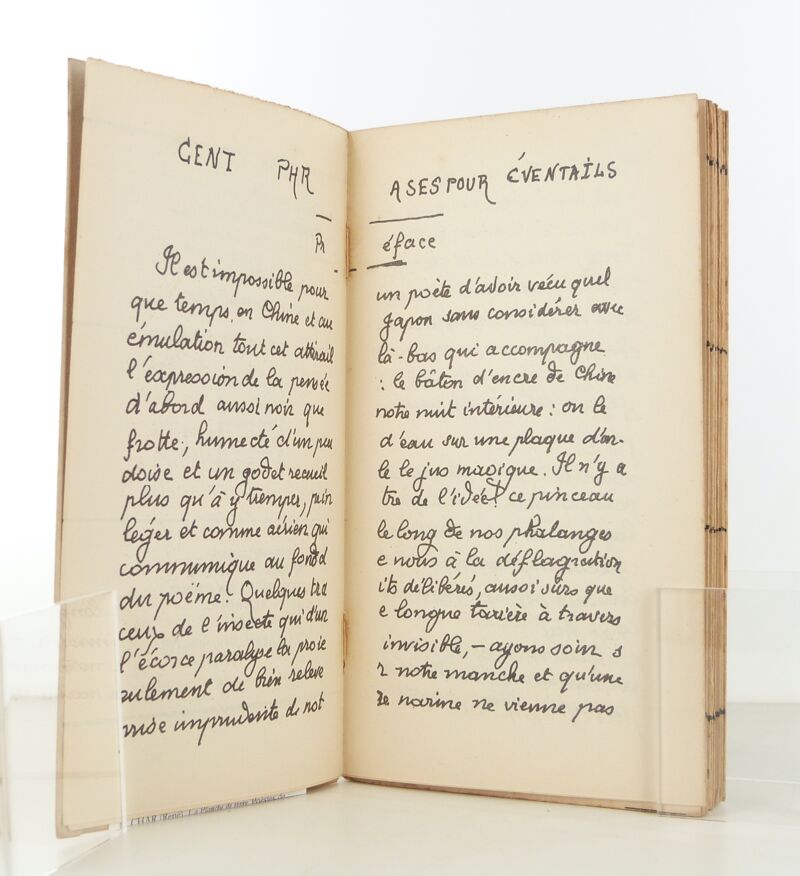 CENT PHRASES POUR ÉVENTAILS
Préface
Il est impossible pour un poète d'avoir vécu quel
que temps en Chine et au Japon sans considérer avec
émulation tout cet attirail là-bas qui accompagne
l'expression de la pensée : le bâton d'encre de Chine
d'abord aussi noir que notre nuit intérieure : on le
frotte, humecté d'un peu d'eau sur une plaque d'ar-
doise et un godet recueil le le jus magique. Il n'y a
plus qu'à y tremper, pein tre de l'idée! ce pinceau
léger et comme aérien qui le long de nos phalanges
communique au fond de nous à la déflagration
du poème. Quelques tra its délibérés, aussi sûrs que
ceux de l'insecte qui d'un e longue tarière à travers
l'écorce paralyse la proie invisible, – ayons soin s
eulement de bien releve r notre manche et qu'une
mise imprudente de not re narine ne vienne pas
CHAR (René). La Planche de vivre. Poésies de